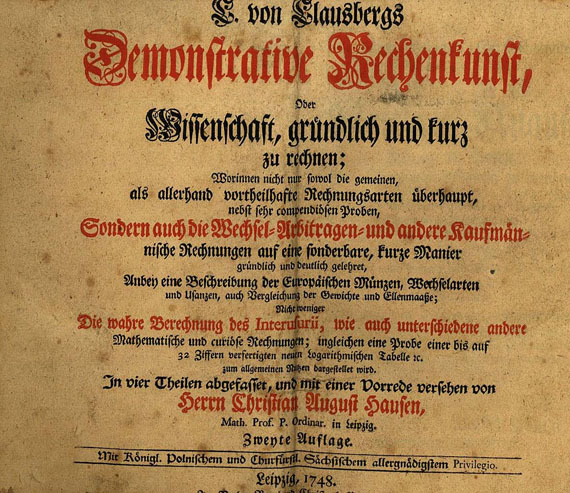 C. von Clausbergs
Demonstrative Rechenkunst,
Oder
Wissenschaft, gründlich und kurz
zu rechnen;
Worinnen nicht nur sowol die gemeinen,
als allerhand vortheilhafte Rechnungsarten überhaupt,
nebst sehr compendiösen Proben,
Sondern auch die Wechsel-Arbitragen- und andere Kaufmän-
nische Rechnungen auf eine sonderbare, kurze Manier
gründlich und deutlich gelehret,
Anbey eine Beschreibung der Europäischen Münzen, Wechselarten
und Usanzen, auch Vergleichung der Gewichte und Ellenmaaße;
Nicht weniger
Die wahre Berechnung des Interusurii, wie auch unterschiedene andere
Mathematische und curiöse Rechnungen; ingleichen eine Probe einer bis auf
32 Ziffern verfertigten neuen Logarithmischen Tabelle ꝛc.
zum allgemeinen Nutzen dargestellet wird.
In vier Theilen abgefasset, und mit einer Vorrede versehen von
Herrn Christian August Hausen,
Math. Prof. P. Ordinar. in Leipzig.
Zweyte Auflage.
Mit Königl. Polnischem und Churfürstl. Sächsischem allergnädigstem Privilegio.
Leipzig, 1748.